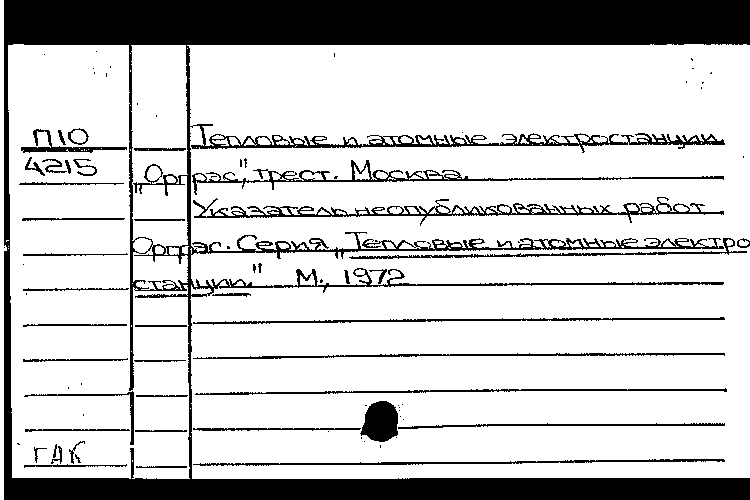 П10
4215
Тепловые и атомные электростанции
„Оргрэс", трест. Москва.
Указатель неопубликованных работ
Оргрэс. Серия „Тепловые и атомные электро
станции." М., 1972
ГАК